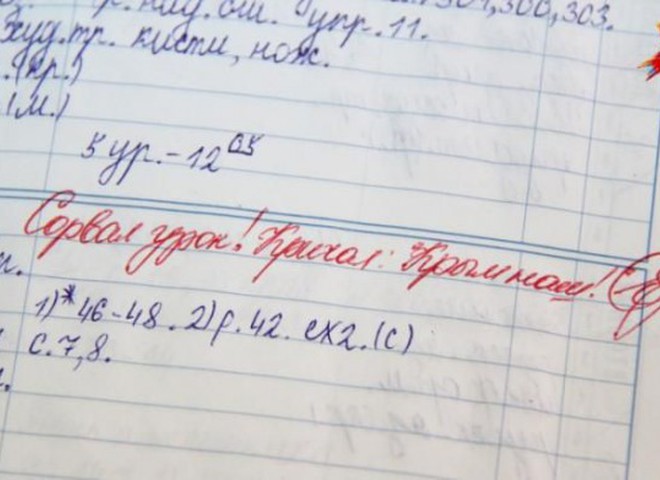 р. над. ош. упр. 11. 301, 300, 303.
худ. тр. кисти, нож.
.(кр.)
(м.)
5 ур. - 12 05
Сорвал урок! Кричал: "Крым наш!"
1)*46-48. 2) р. 42. ex2. (с)
с. 7, 8.